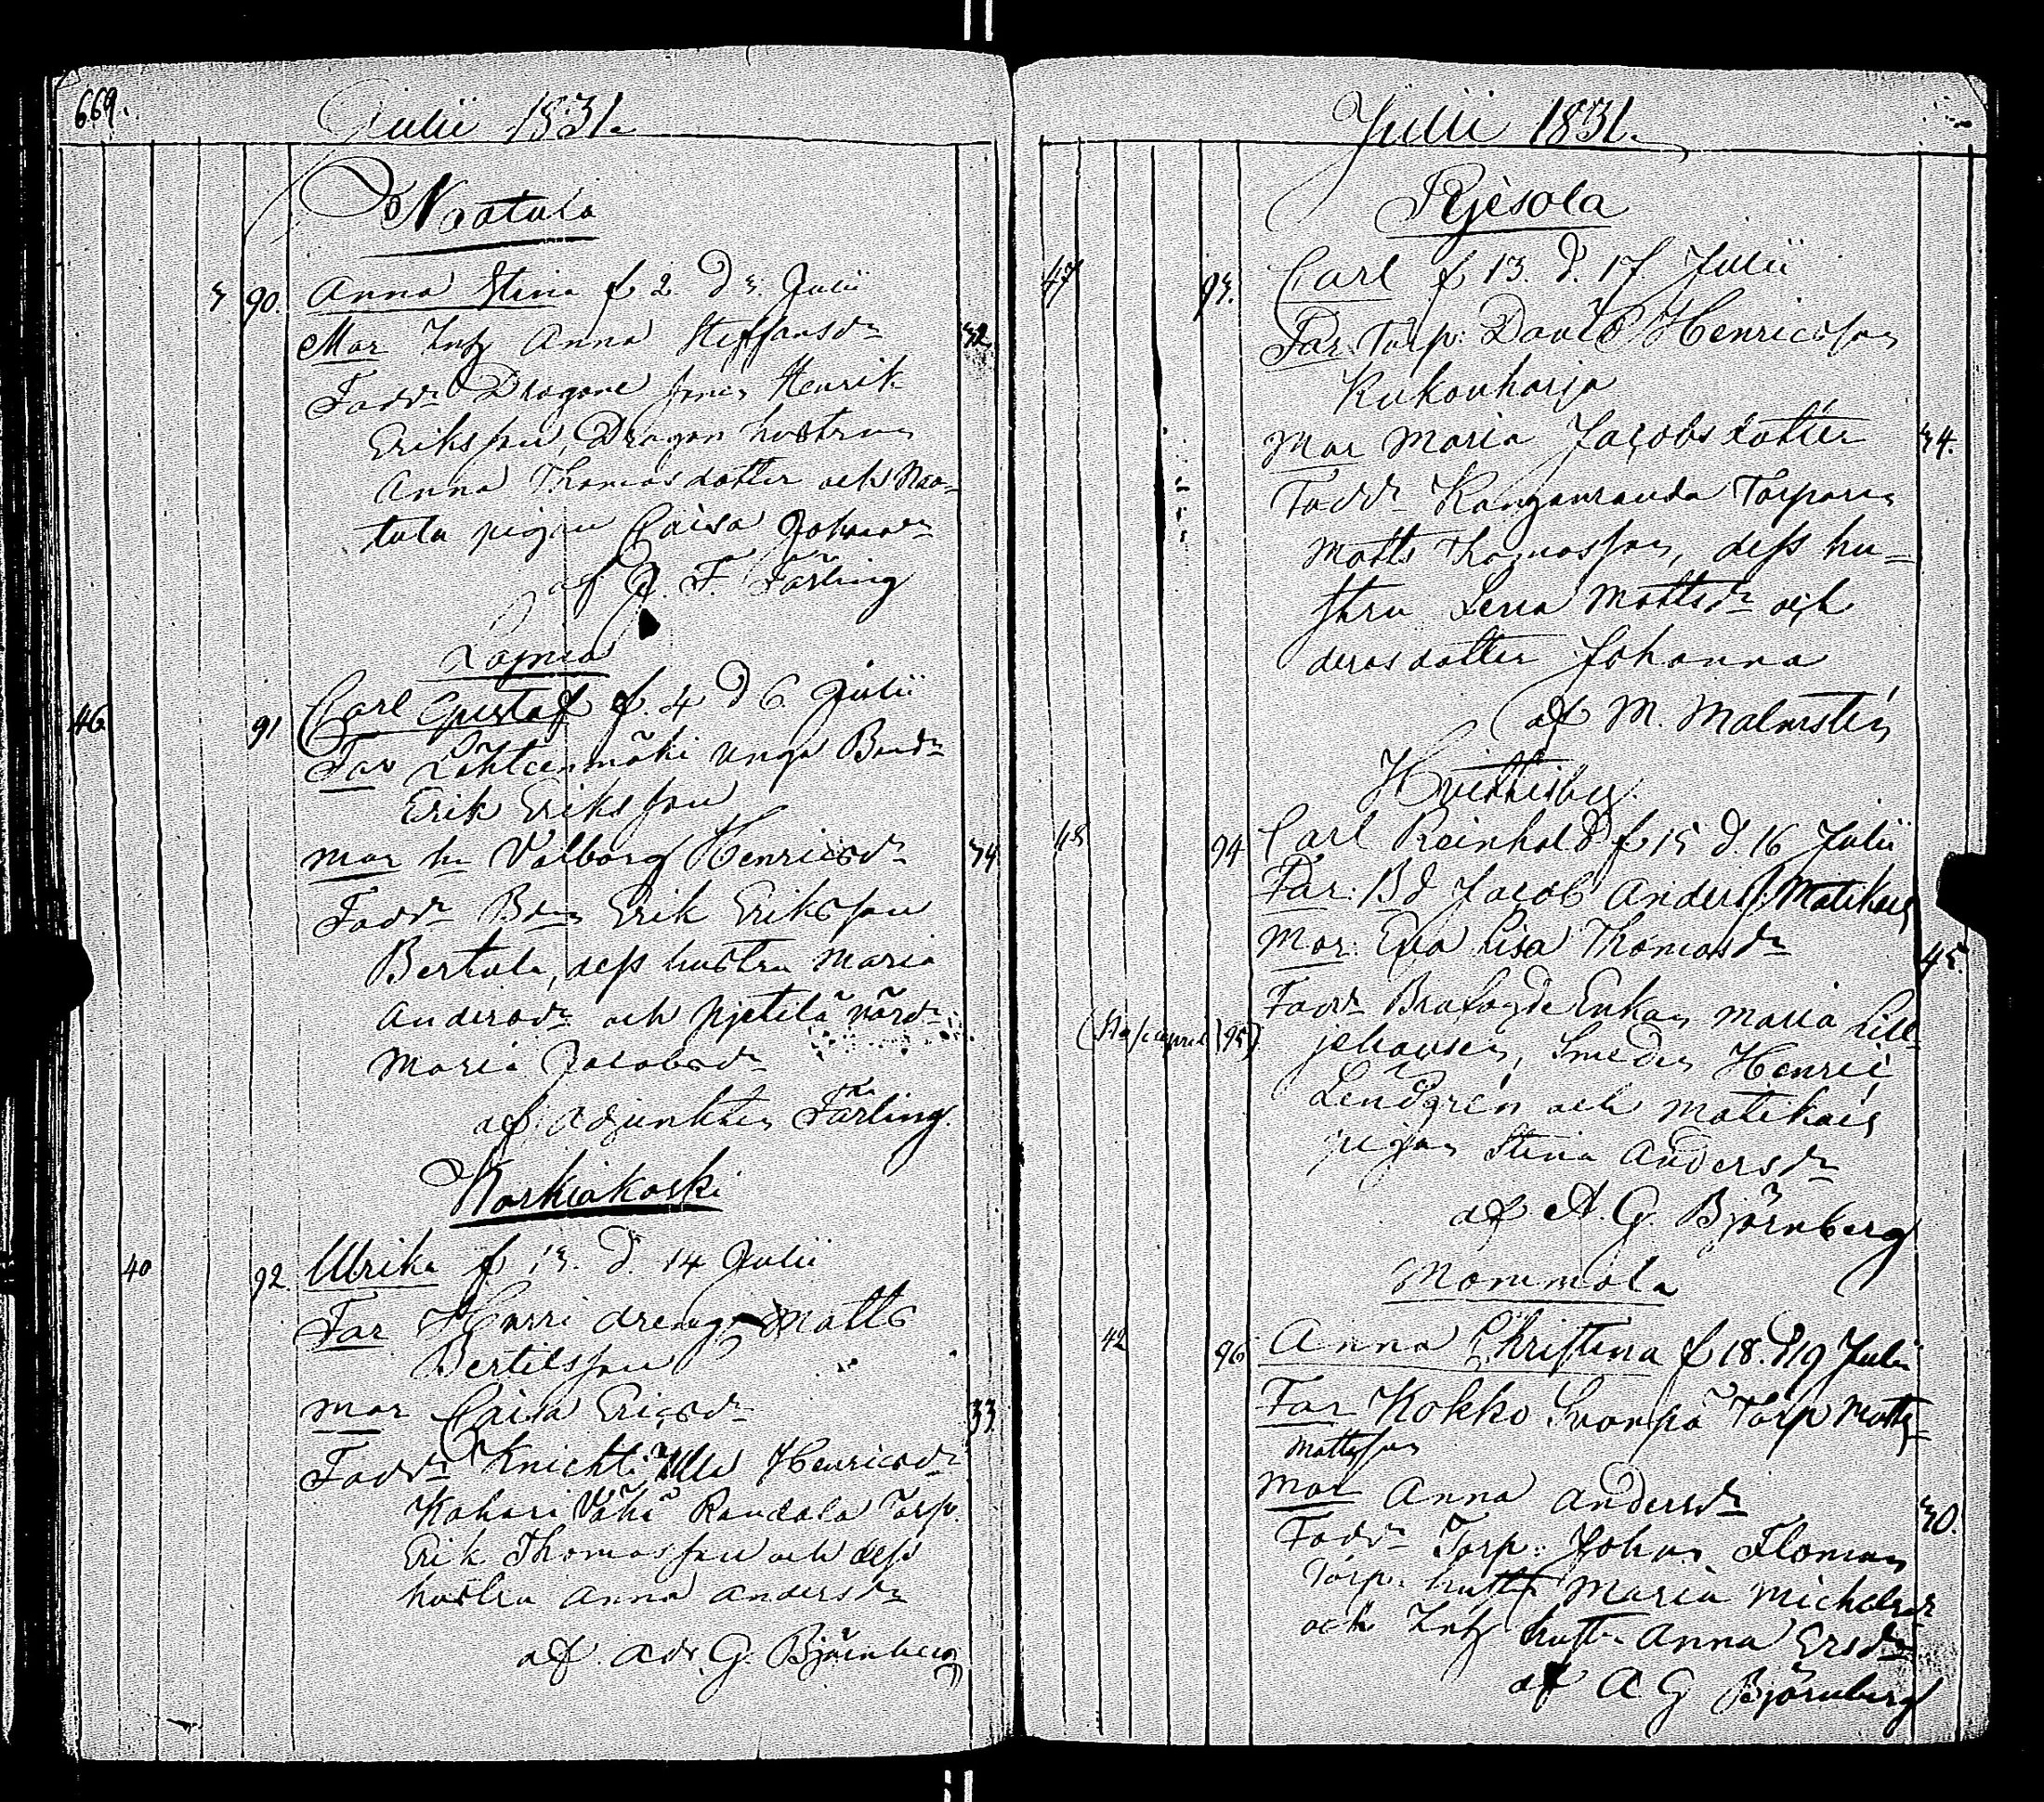 669.
Julii 1831.
Naatula
3 90. Anna Stina f 2 d 3. Julii
Mor Inh Anna Steffansdr 32.
Faddr Dragone sonen Henrik
Eriksson, Dragon hustrun
Anna Thomasdotter och Naa-
tula pigan Caisa Johansdr
af J. F. Färling
Lagmea
46 91 Carl Gustaf f. 4 d 6 Julii
Far Lähteenmäki unga Bond
Erik Eriksson
Mor h. Valborg Henricsdr 34
Faddr Bdn Erik Eriksson
Bertula, dess hustru Maria
Andersdr och Pjetilä värd
Maria Jacobsdr
af Adjunkten Färling.
Korkiakoski
40 92. Ulrika f 13. d. 14 Julii
Far Harri dreng Matts
Bertilsson
Mor Caisa Ericsdr 33
Faddr Knichti Ulla Henricsdr
Kahari Vähä Randala Torp.
Erik Thomasson och dess
hustru Anna Andersdr
af Adj. G. Björnberg
Julii 1831.
Rjesola
47 93. Carl f 13. d. 17 Julii
Far: Torp: David Henricsson
Kukonharja
Mor Maria Jacobsdotter 34.
Faddr Kanganranda Torparen
Matts Thomasson, dess hu-
stru Lena Mattsdr och
deras dotter Johanna
af M. Malmstén
Hvittisby.
48 94 Carl Reinhold f 15 d. 16 Julii
Far: Bd Jacob Anderss. Matikais
Mor: Eva Lisa Thomasdr 45.
Faddr Brofogde Enkan Maria Lill-
(95) johansen, Smeden Henric
Lendgrén och Matikais
pigan Stina Andersdr
af A. G. Björnberg
Mommola
42 96 Anna Christina f 18. d 19 Julii
Far Kokko Svorpa Torp Matts
Mattsson
Mor Anna Andersdr 30.
Faddr Torp: Johan Floman
Torp. hustr Maria Michelsdr
och Inh hustr Anna Ersdr
af A G Björnberg